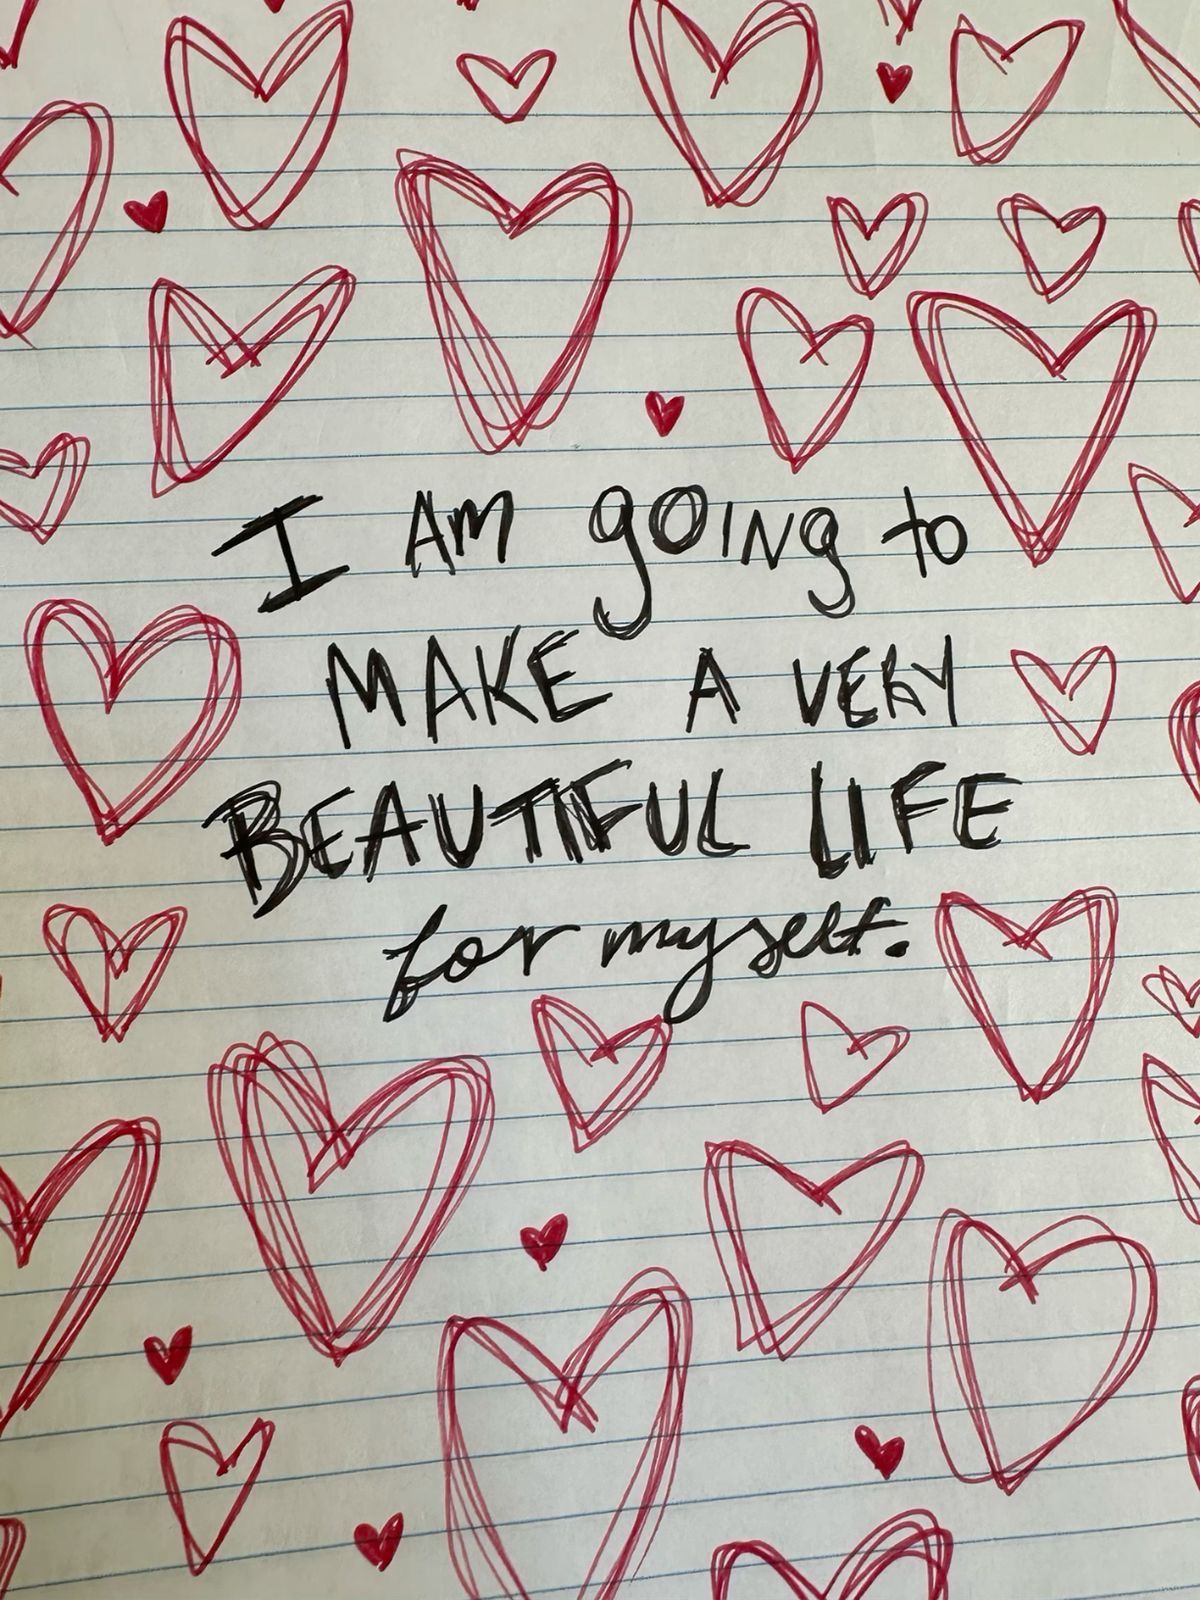 I AM goING to
MAKE A VERY
BEAUTIFUL LIFE
for myself.